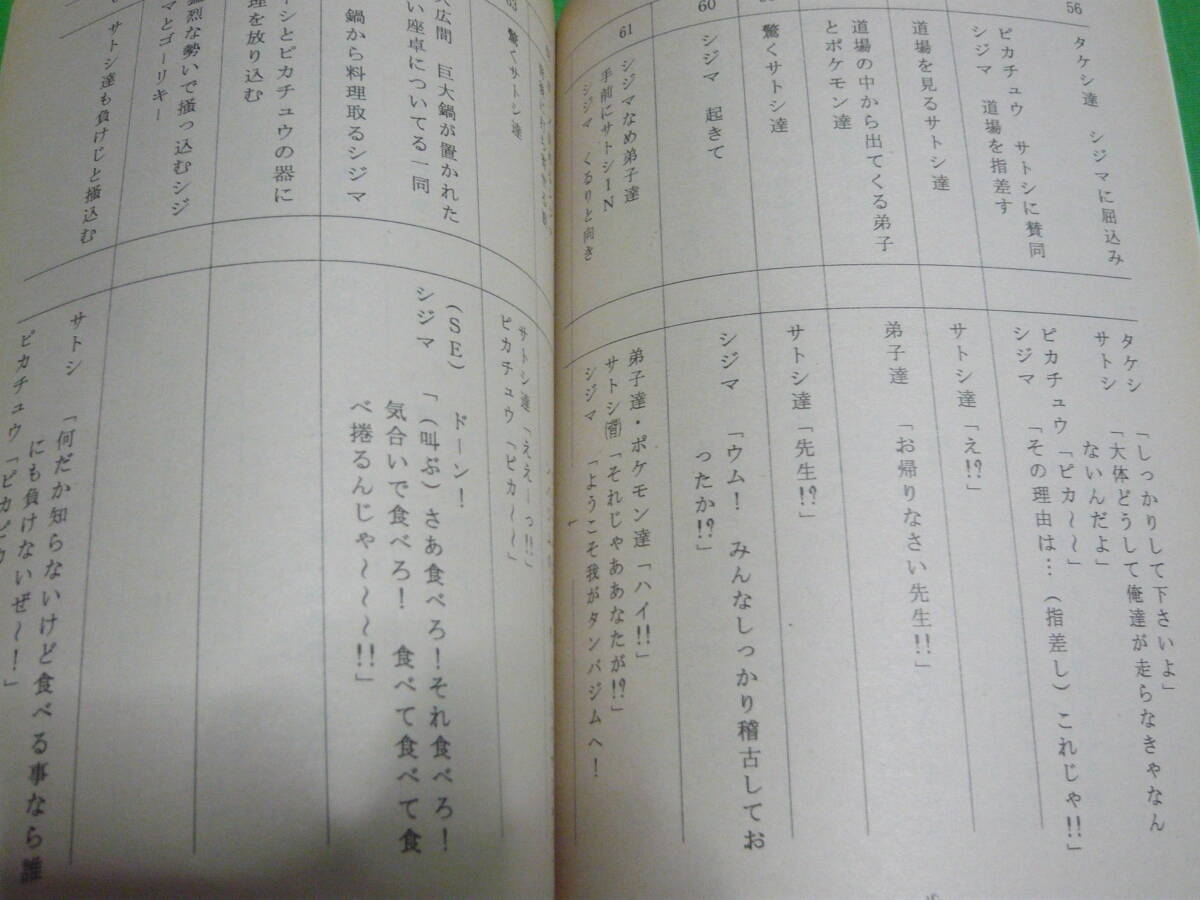 56
タケシ達　シジマに屈込み
ピカチュウ　サトシに賛同
シジマ　道場を指差す
道場を見るサトシ達
道場の中から出てくる弟子
とポケモン達
驚くサトシ達
60
シジマ　起きて
61
シジマなめ弟子達
手前にサトシIN
シジマ　くるりと向き
タケシ　「しっかりして下さいよ」
サトシ　「大体どうして俺達が走らなきゃなん
ないんだよ」
ピカチュウ「ピカ～～」
シジマ　「その理由は…（指差し）これじゃ!!」
サトシ達「え!?」
弟子達　「お帰りなさい先生!!」
サトシ達「先生!?」
シジマ　「ウム！　みんなしっかり稽古してお
ったか!?」
弟子達・ポケモン達「ハイ!!」
サトシ「それじゃああなたが!?」
シジマ　「ようこそ我がタンバジムへ！
驚くサトシ達
大広間　巨大鍋が置かれた
い座卓についてる一同
鍋から料理取るシジマ
シとピカチュウの器に
理を放り込む
烈な勢いで掻っ込むシジ
マとゴーリキー
サトシ達も負けじと掻込む
サトシ達「ええーっ!!」
ピカチュウ「ピカ～～」
（SE）　ドーン！
シジマ　「（叫ぶ）さあ食べろ！それ食べろ！
気合いで食べろ！　食べて食べて食
べ捲るんじゃ～～～!!」
サトシ　「何だか知らないけど食べる事なら誰
にも負けないぜ～！」
ピカチュウ「ピカピ